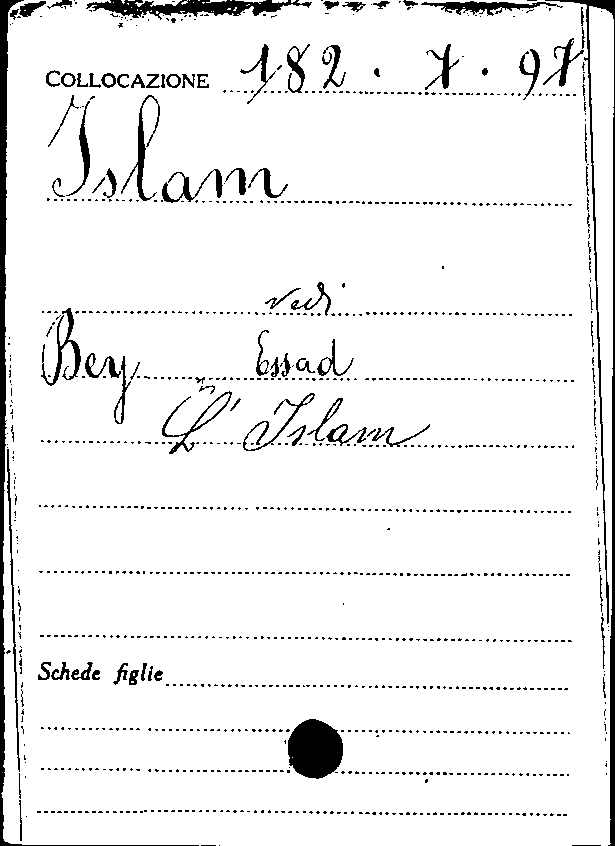 COLLOCAZIONE 182 . 7 . 97
Islam
vedi
Bey Essad
L' Islam
Schede figlie